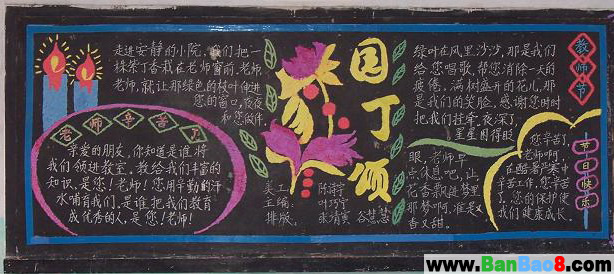 走进安静的小院,我们把一
株紫丁香栽在老师窗前,老师,
老师,就让那绿色的枝叶伸进
您的窗口,夜夜
和您做伴。
老师辛苦了
亲爱的朋友,你知道是谁将
我们领进教室,教给我们丰富的
知识,是您!老师!您用辛勤的汗
水哺育我们,是谁把我们教育
成优秀的人,是您!老师!
园丁颂
美工
主编
排版
叶巧宁
谷慧慧
绿叶在风里沙沙,那是我们
给您唱歌,帮您消除一天的
疲倦。满树盛开的花儿,那
是我们的笑脸,感谢您时时
把我们挂牵。夜深了,
星星困得眨
眼,老师,早
点休息吧,让
花香飘进梦里
那梦啊,准是又
香又甜。
教师节
您辛苦了
老师啊,
在酷暑严寒中
辛苦工作,您辛苦
了,您的保护使
我们健康成长。
节日快乐
www.BanBao8.com